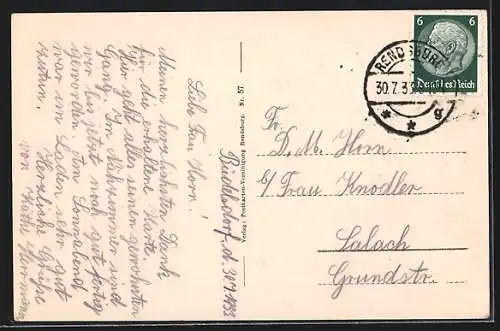 Büdelsdorf, d. 30.7.1933
Liebe Frau Horn!
Meinen herzlichsten Dank
für die erhaltene Karte.
Hier geht alles seinen gewohnten
Gang. Im Nähzimmer sind
wir bis jetzt noch gut fertig
geworden. Am Sonnabend
war im Laden sehr gut
zu tun.
Herzliche Grüße
von Käthe Hermann
Verlag: Postkarten-Vereinigung Rendsburg. Nr. 57.
6 6
Deutsches Reich
RENDSBURG
30.7.33
* * g
Fr.
D. M. Horn
b/ Frau Knödler
Salach
Grundstr.